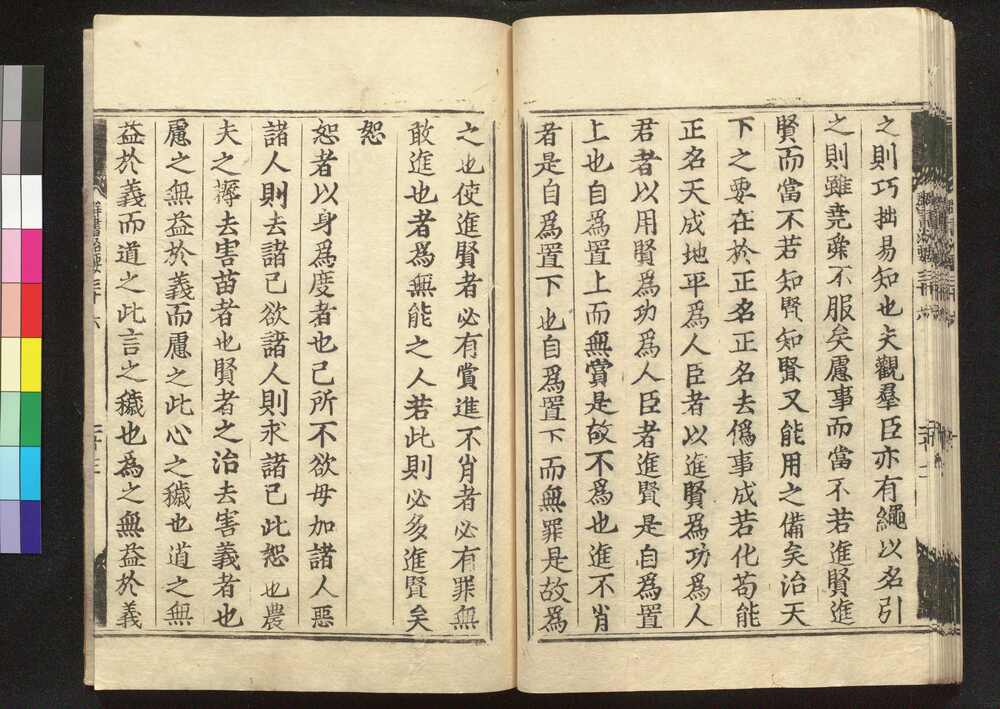 之則巧拙易知也夫觀羣臣亦有繩以名引
之則雖堯舜不服矣慮事而當不若進賢進
賢而當不若知賢知賢又能用之備矣治天
下之要在於正名正名去僞事成若化苟能
正名天成地平爲人臣者以進賢爲功爲人
君者以用賢爲功爲人臣者進賢是自爲置
上也自爲置上而無賞是故不爲也進不肖
者是自爲置下也自爲置下而無罪是故爲
之也使進賢者必有賞進不肖者必有罪無
敢進也者爲無能之人若此則必多進賢矣
恕
恕者以身爲度者也己所不欲毋加諸人惡
諸人則去諸己欲諸人則求諸己此恕也農
夫之耨去害苗者也賢者之治去害義者也
慮之無益於義而慮之此心之穢也道之無
益於義而道之此言之穢也爲之無益於義
群書治要三十六
二十三